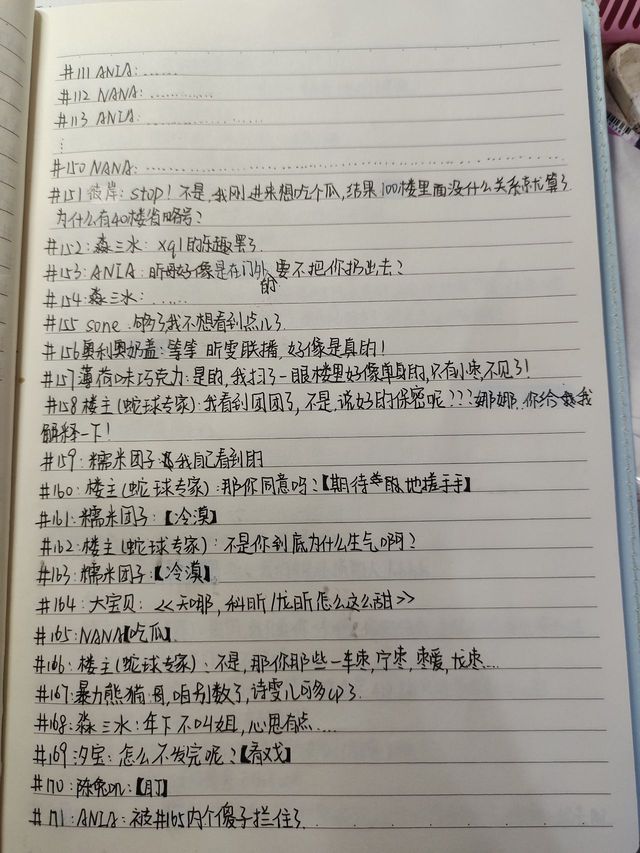 #111 ANIA:......
#112 NANA:............
#113 ANIA:......................
⋮
#150 NANA:..........................................
#151 彼岸: stop! 不是,我刚进来想吃个瓜,结果100楼里面没什么关系就算了
为什么有40楼省略号?
#152:淼三水: xql的乐趣罢了
#153:ANIA:昕母好像是在门外的要不把你扔出去?
#154:淼三水:......
#155 sone 够了我不想看到点儿了
#156奥利奥奶盖:等等 昕雯联播,好像是真的!
#157薄荷味巧克力:是的,我扫了一眼楼里好像单身的,只有小枣,不见了!
#158楼主(蛇球专家):我看到团团了,不是,说好的保密呢???娜娜,你给我
解释一下!
#159:糯米团子:我自己看到的
#160:楼主(蛇球专家):那你同意吗?【期待地搓手手】
#161:糯米团子:【冷漠】
#162:楼主(蛇球专家):不是你到底为什么生气啊?
#163:糯米团子:【冷漠】
#164:大宝贝:《知哪,科昕/龙昕怎么这么甜》
#165:NANA【吃瓜】
#166:楼主(蛇球专家):不是,那你那些一车枣,宁枣,枣爱,龙枣....
#167:暴力熊猫:哥,咱别数了,诗雯儿可多cp了
#168:淼三水:年下不叫姐,心思有点....
#169汐宝:怎么不发完呢?【看戏】
#170:陈兔叽:【盯】
#171:ANIA:被#165内个傻子拦住了